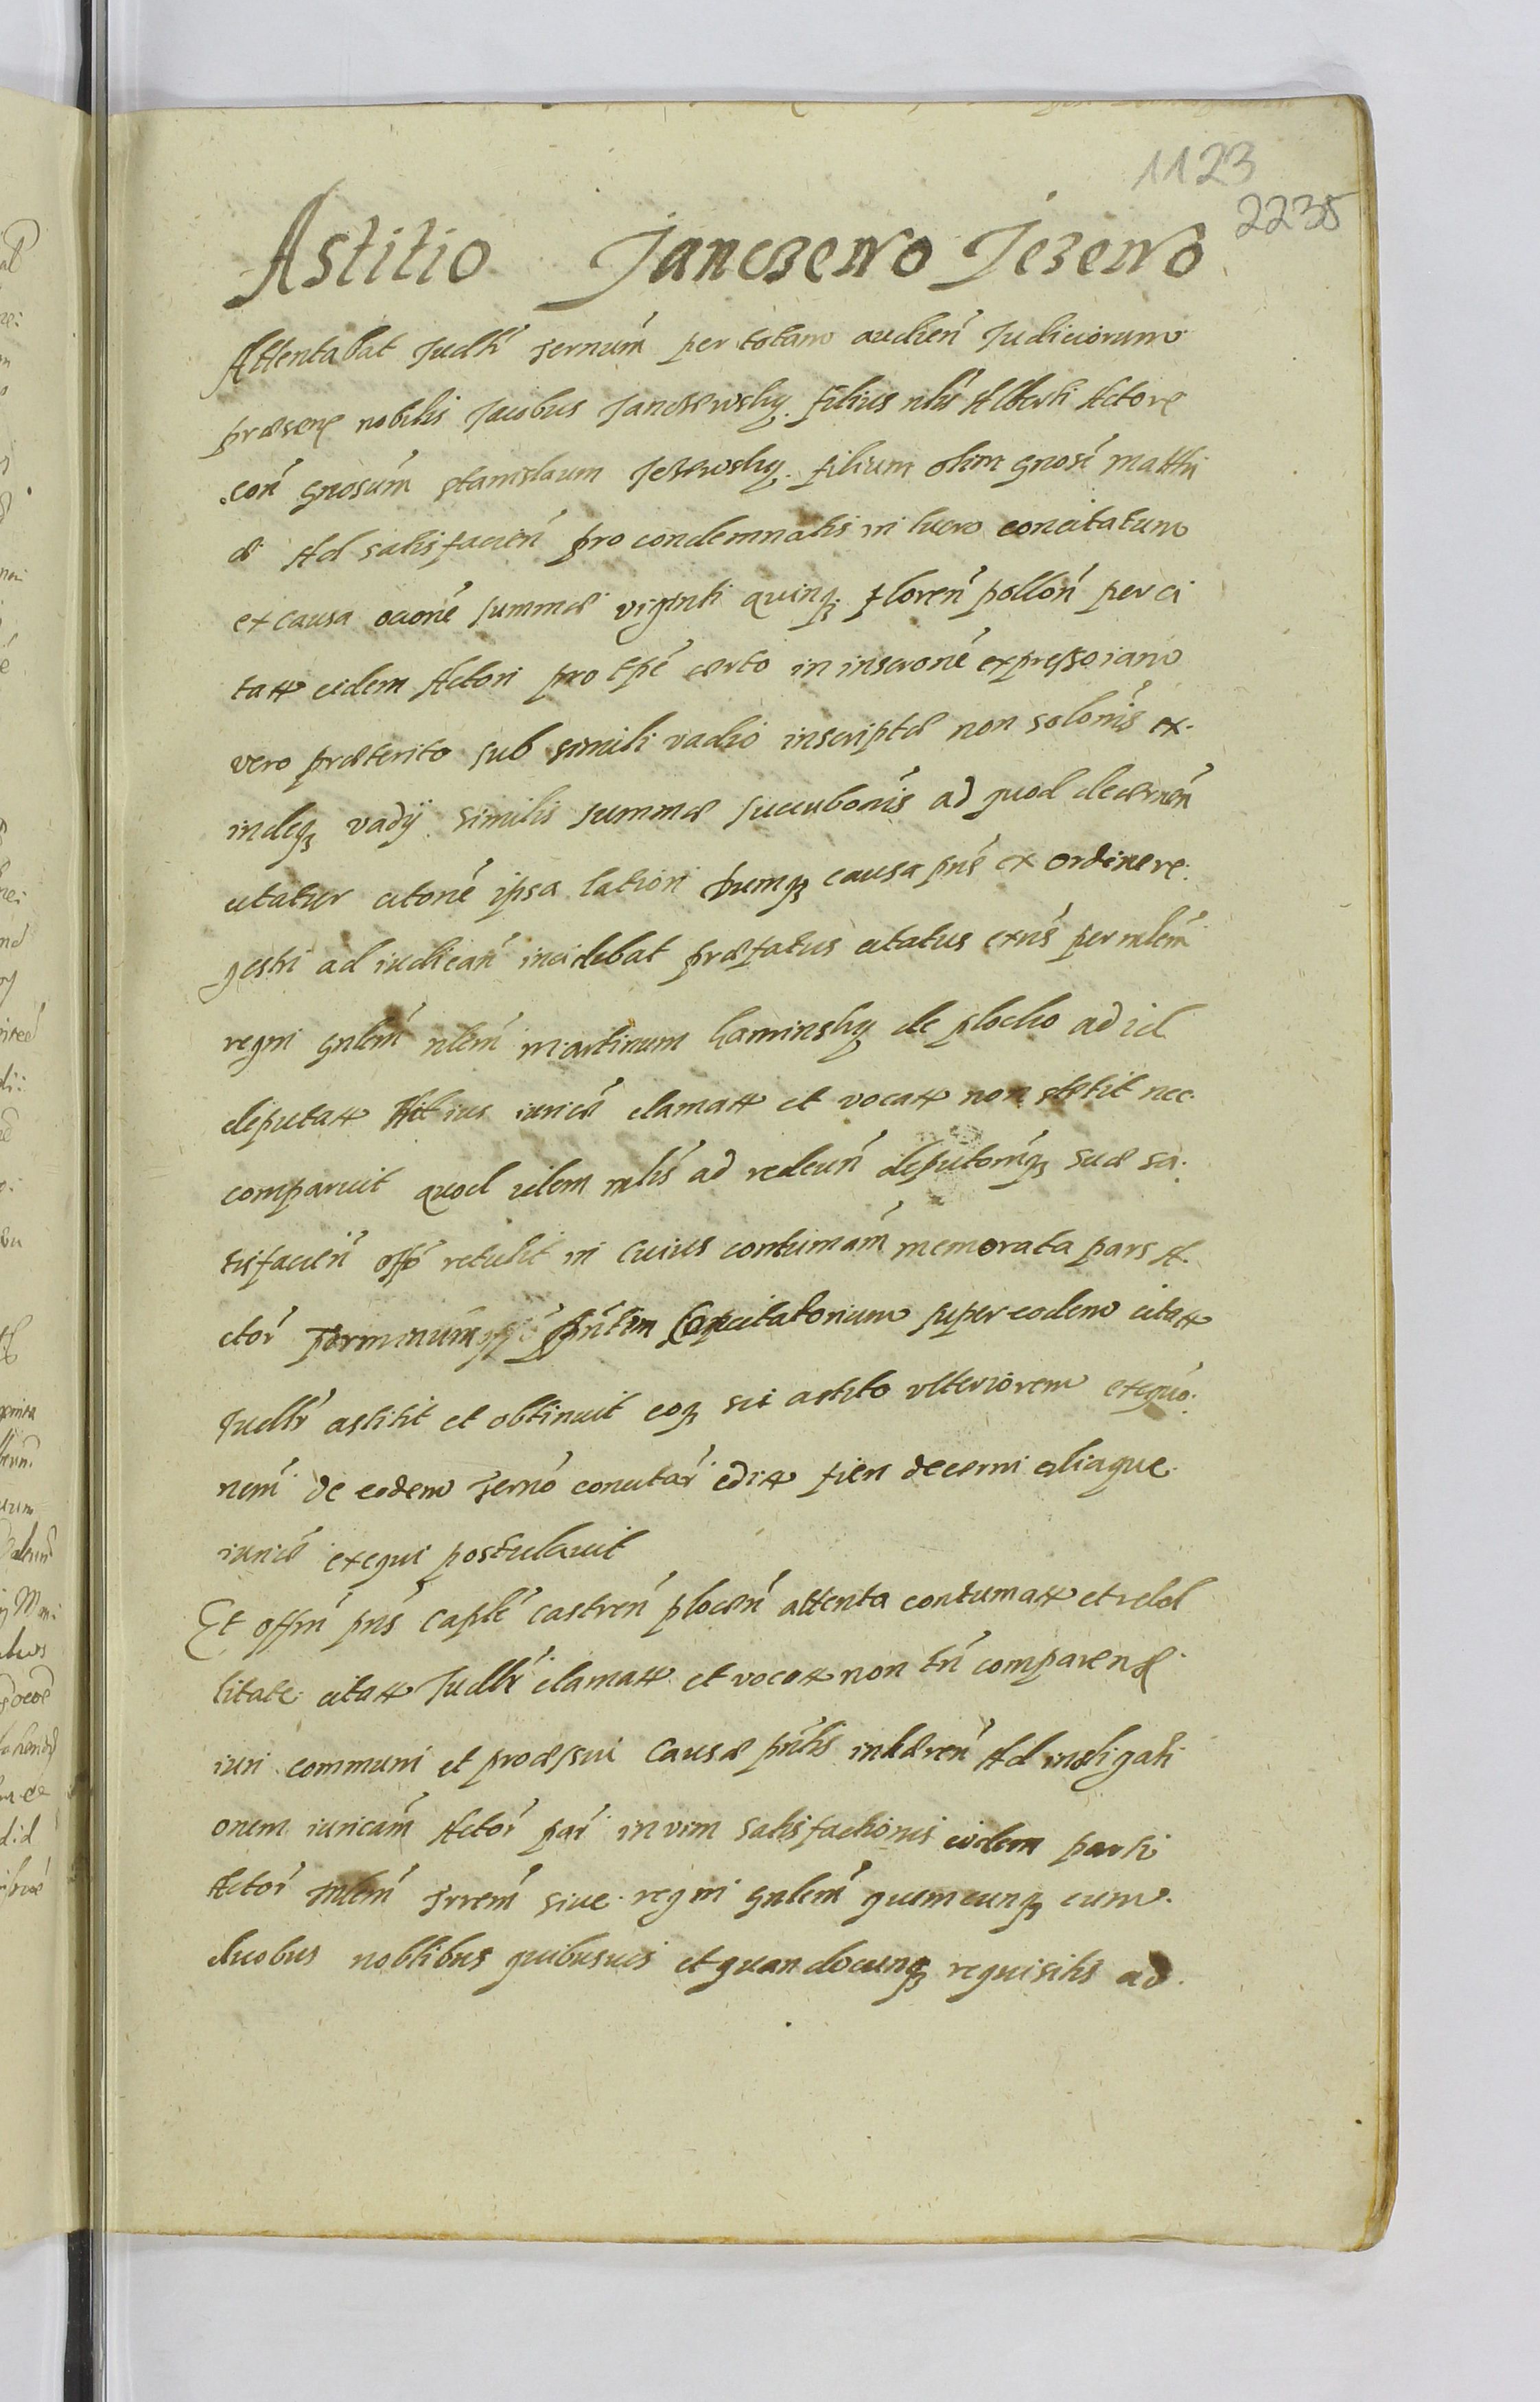 1123
2235
Astitio Janczewo Jezewo
Attentabat Judlr ternum per totam audien Judiciorum
præsens nobilis Jacobus Janczewsky filius nlis Alberti Actore
con gnosum Stanislaum Jezewsky filium olim gnosi Matthi
æ Ad satisfacien pro condemnatis in lucro concitatum
ex causa oaone summæ viginti quinq floren pollon per ci
tat eidem Actori pro tpe certo in inscrone expresso iam
vero præterito sub simili vadio inscriptæ non solonis ex
indeq vadij similis summæ succubonis ad quod decernen
citatur citone ipsa latiori dumq causa pns ex ordine re
gestri ad iudican incidebat præfatus citatus exns per mlem
regni gnlem nlem Martinum Kaminsky de plocko ad id
deputat iurice clamat et vocat non stetit nec
comparuit quod idem mlis ad redeun deputoniq suæ sa
tisfacien offo retulit in cuius contumam memorata pars A
ctor terminum concitatorium super eodem citat
Judlr astitit et obtinuit eoq sic astito ulteriorem exequo
nem de eodem terno concitar edit fieri decerni aliaque
iurice exequi postulavit
Et offm pns caple castren plocen attenta contumat et rebel
litate citat Judlr clamat et vocat non tn comparen
iuri communi et processui causæ pntis inhæren Ad instigati
onem iuricam Actor par in vim satisfactionis eidem parti
Actor mlem trrem sive regni gnlem quemcunq cum
duobus noblibus quibusvis et quandocunq requisitis ad